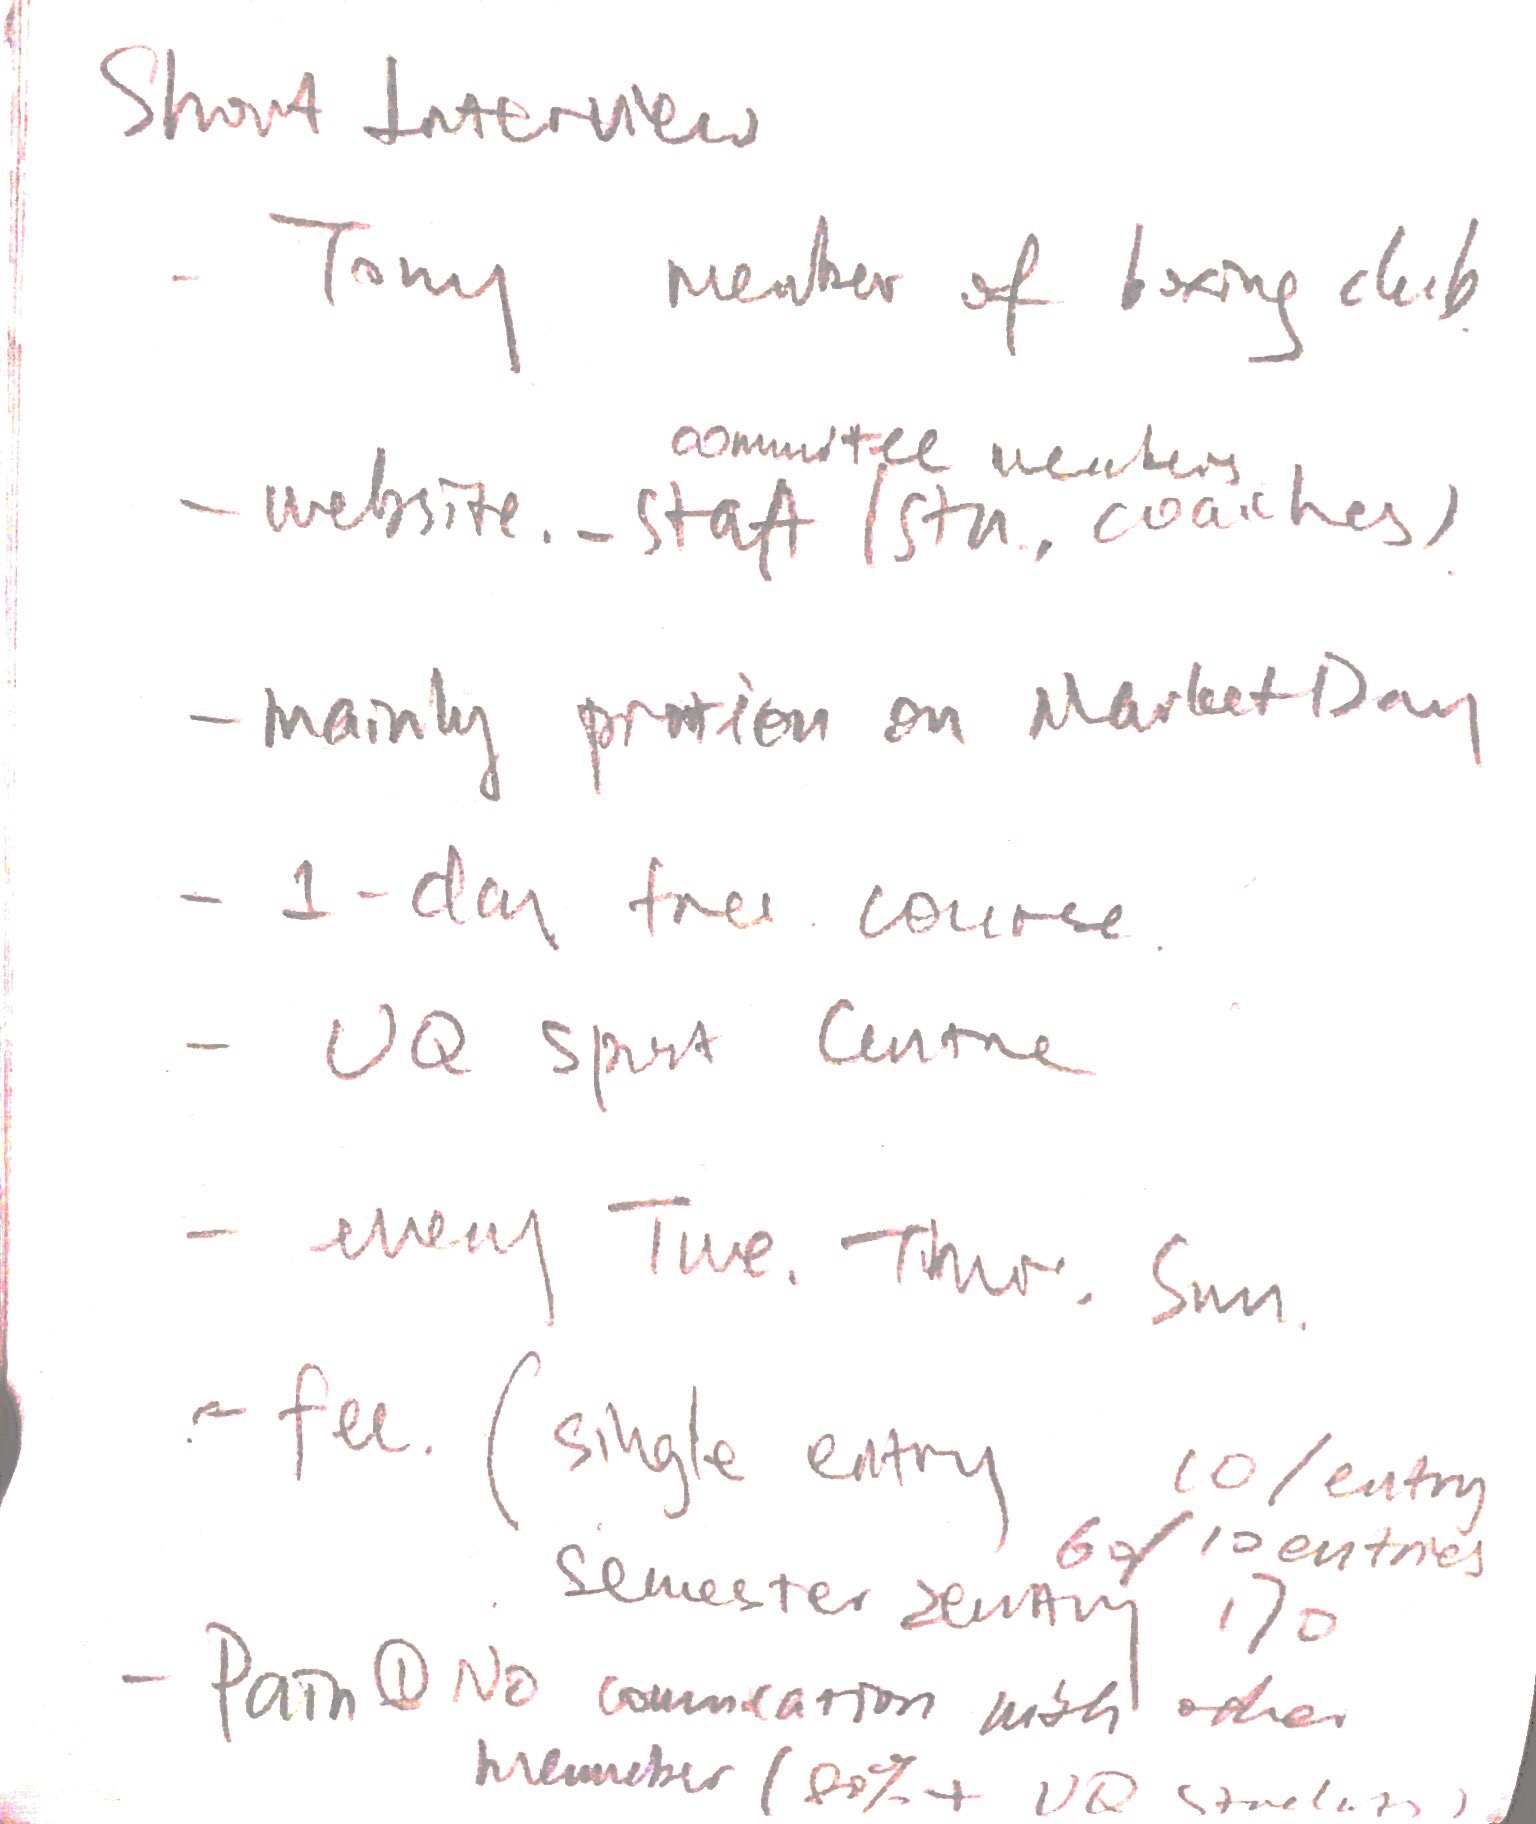 Short Interview
- Tony member of boxing club.
committee members
- website. - staff (stu., coaches)
- mainly promotion on Market Day
- 1-day free course.
- UQ sport Centre
- every Tue. Thur. Sun.
- fee. (single entry 10/entry
60/10 entries
semester entry 170
- Pain ① No communication with other
member (80% + UQ students)